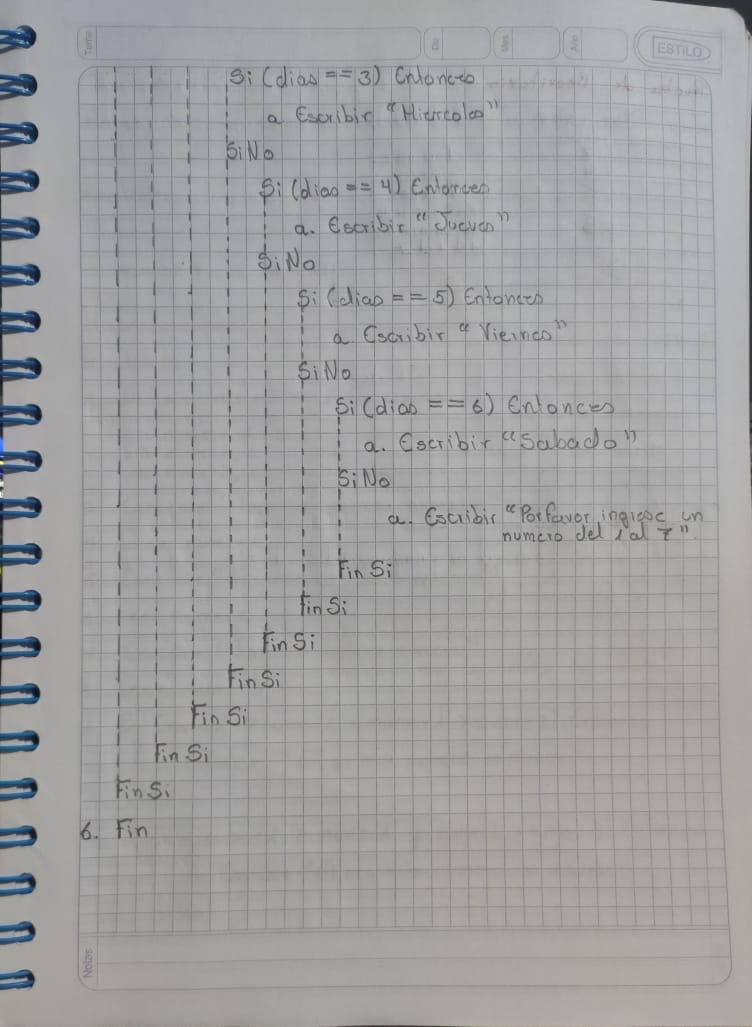 Tema
Día
Mes
Año
ESTILO
Si (dias == 3) Entonces
a Escribir "Miercoles"
SiNo
Si (dias == 4) Entonces
a. Escribir "Jueves"
SiNo
Si (dias == 5) Entonces
a Escribir "Viernes"
SiNo
Si (dias == 6) Entonces
a. Escribir "Sabado"
SiNo
a. Escribir "Por favor ingrese un
numero del 1 al 7".
Fin Si
Fin Si
Fin Si
Fin Si
Fin Si
Fin Si
Fin Si
6. Fin
Notas